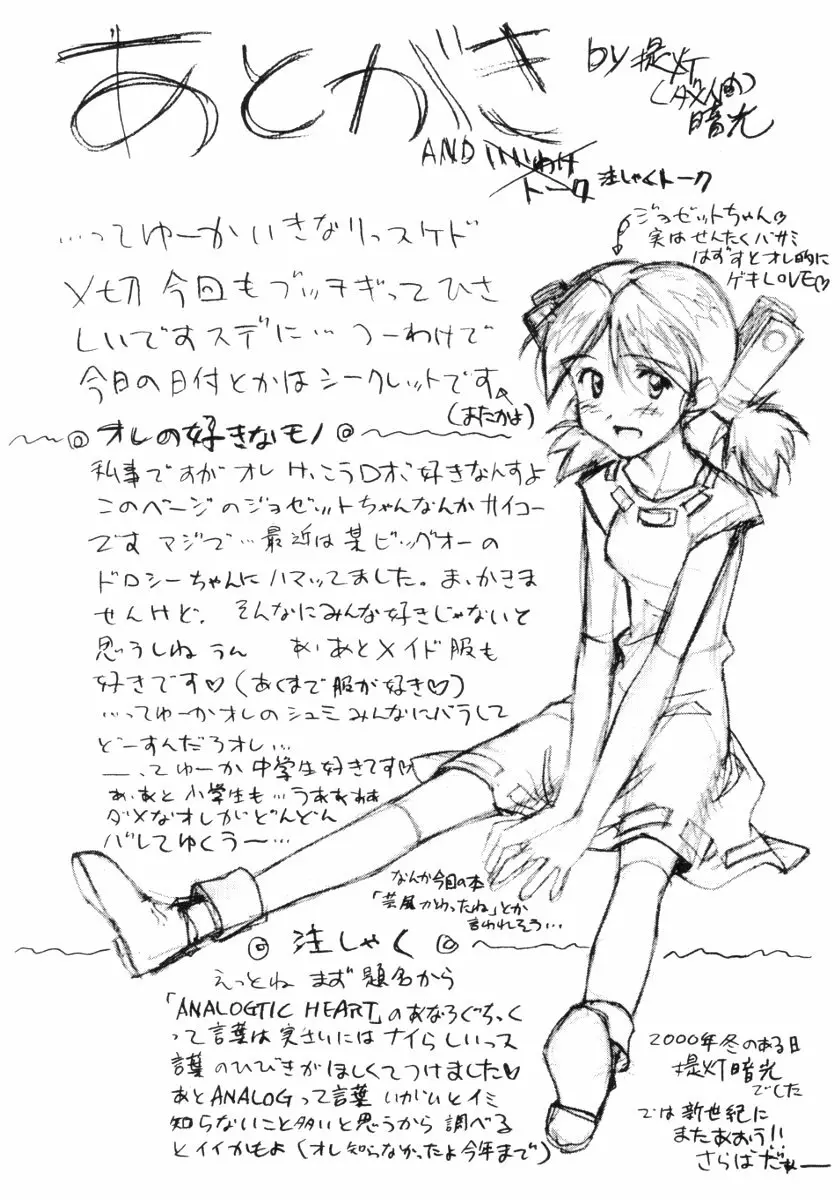 あとがき
by 提灯
(ダメ人間)
暗光
AND いいわけ
トーク 注しゃくトーク
ジョゼットちゃん♡
実はせんたくバサミ
はずすとオレ的に
ゲキLOVE♡
…ってゆーかいきなりっスケド
〆切今回もブッチギってひさ
しいですスデに…つーわけで
今日の日付とかはシークレットです
(またかよ)
◎オレの好きなモノ◎
私事ですがオレけっこうロボ好きなんすよ
このページのジョゼットちゃんなんかサイコー
です マジで…最近は某ビッグオーの
ドロシーちゃんにハマッてました。ま、かきま
せんけど。そんなにみんな好きじゃないと
思うしね うん あ、あとメイド服も
好きです♡(あくまで服が好き♡)
…ってゆーかオレのシュミみんなにバラして
どーすんだろオレ…
―ってゆーか中学生好きです♡
あ、あと小学生も…うああああ
ダメなオレがどんどん
バレてゆくうー…
なんか今回の本
「芸風かわったね」とか
言われそう…
◎注しゃく◎
えっとね まず題名から
「ANALOGTIC HEART」のあなろぐちっく
って言葉は実さいにはナイらしいっス
言葉のひびきがほしくてつけました♡
あとANALOGって言葉いがいとイミ
知らないこと多いと思うから調べる
とイイかもよ(オレ知らなかったよ今年まで)
2000年冬のある日
提灯暗光
でした
では新世紀に
またあおう!!
さらばだぁー